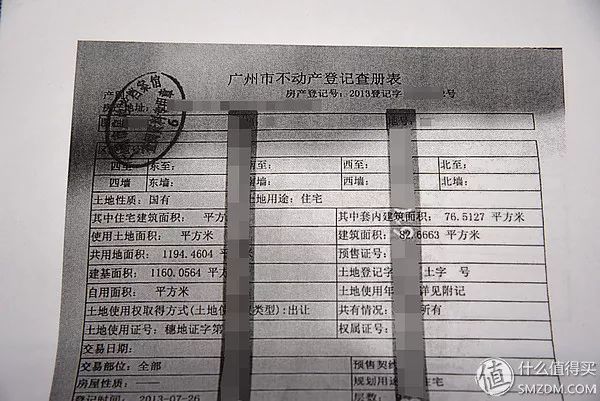 广州市不动产登记查册表
房产登记号：2013登记字 2号
西至： 东至： 西至： 北至：
西墙 东墙： 西墙： 北墙：
土地性质：国有 土地用途：住宅
其中住宅建筑面积： 平方米 其中套内建筑面积： 76.5127 平方米
使用土地面积： 平方米 建筑面积： 82.6663 平方米
共用地面积：1194.4604 平方米 预售证号：
建基面积：1160.0564 平方米 土地登记字 土字 号
自用面积： 平方米 土地使用年 详见附记
土地使用权取得方式(土地使 类型)：出让 共有情况： 所有
土地使用证号：穗地证字第 权属证号：
交易日期：
交易部位：全部 预售契约
房屋性质：—— 规划用途 住宅
登记时间：2013-07-26 层数：
值 什么值得买
SMZDM.COM